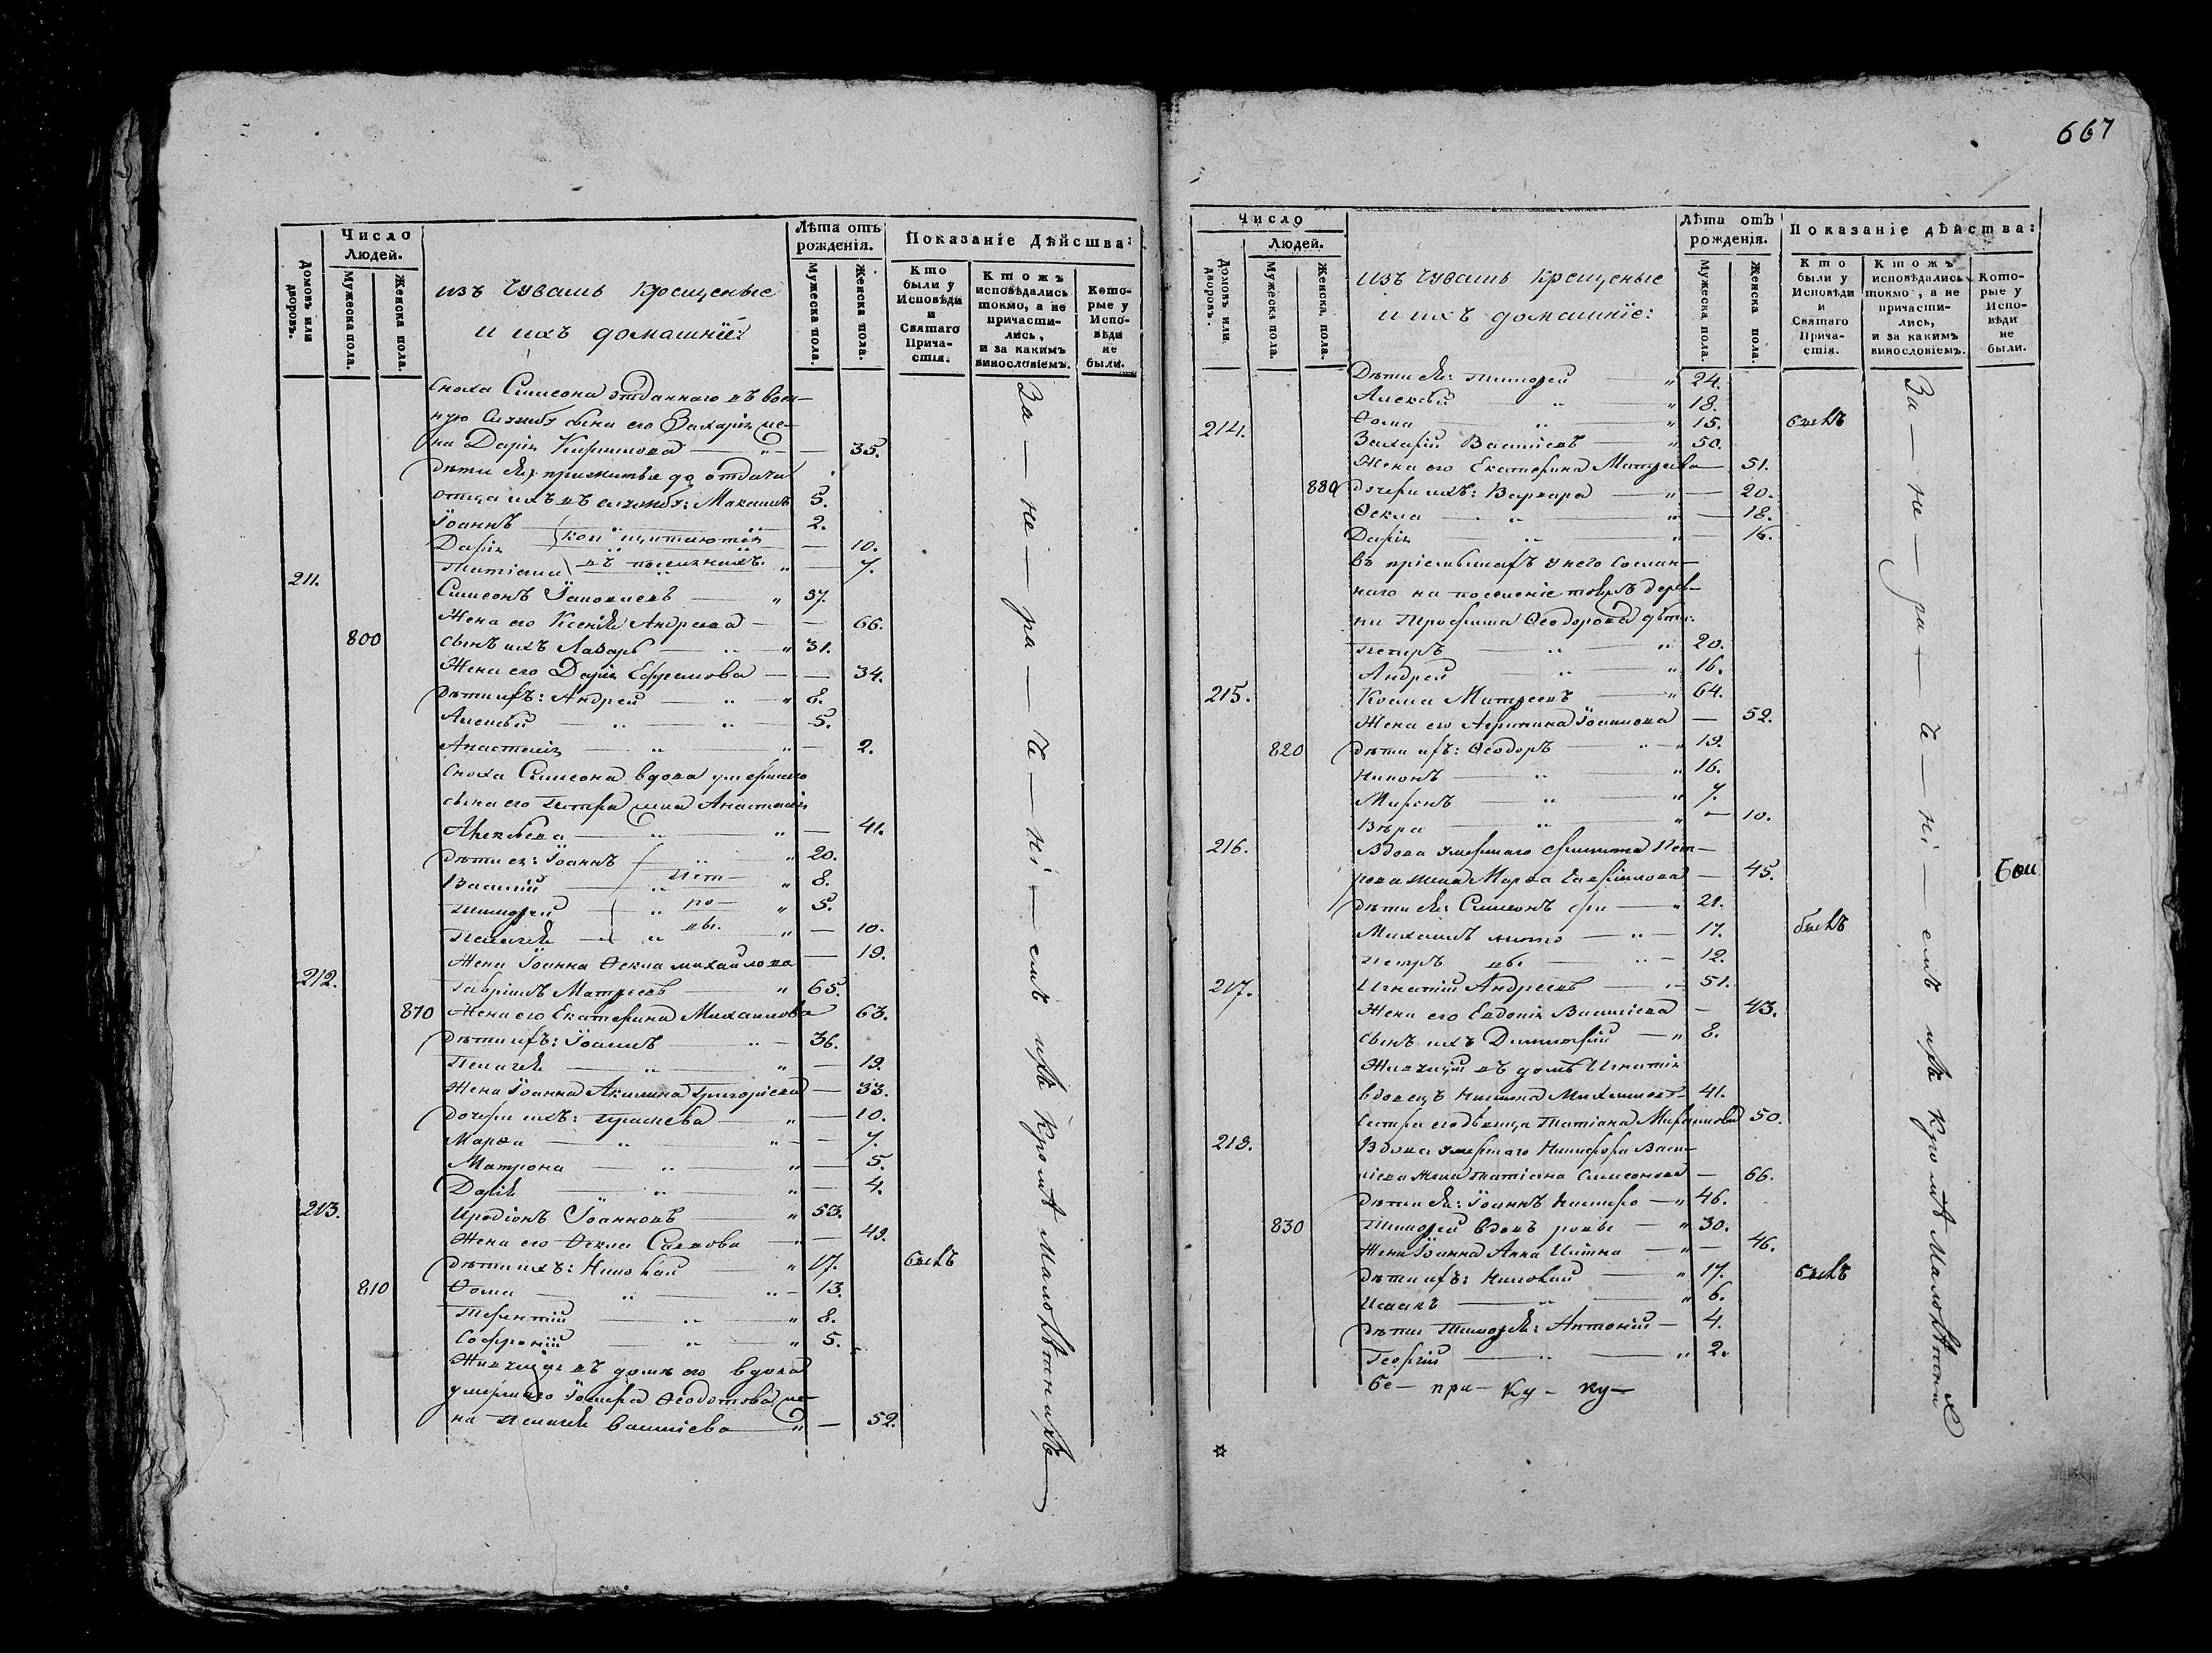 667
Число
Людей.
Домовъ или дворовъ.
Мужеска пола.
Женска пола.
изъ Чувашъ Крещеные
и ихъ домашніе:
Лѣта отъ
рожденія.
Мужеска пола.
Женска пола.
Показаніе Дѣйства:
Кто
были у
Исповѣди
и
Святаго
Прича-
стія.
Ктожъ
исповѣдались
токмо, а не
причасти-
лись,
и за какимъ
винословіемъ.
Кото-
рые у
Испо-
вѣди
не
были.
Сноха Симеона отданнаго въ воен-
ную службу сына его Захарія же-
на Дарія Кириллова — 35.
дѣти ея, прижитые до отдачи
отца ихъ въ службу: Максимъ 5.
Іоаннъ 2.
Дарія — 10.
Татіана — 7.
211. Симеонъ 57.
Жена его Ксенія Андреева — 66.
800 сынъ ихъ Лазарь 31.
Жена его Дарія Ефремова — 34.
Дѣти ихъ: Андрей 8.
Алексѣй 5.
Анастасія — 2.
Сноха Симеона вдова умершаго
сына его Петра жена Анастасія
Алексѣева — 41.
Дѣти ея: Іоаннъ 20.
Василій 8.
Тимофей 5.
Пелагія — 10.
Жена Іоанна Ѳекла Михайлова — 19.
212. Гавріилъ Матвеевъ 65.
870 Жена его Екатерина Михайлова 63.
Дѣти ихъ: Іоаннъ 36.
Пелагія — 19.
Жена Іоанна Акилина Григоріева — 33.
Дочери ихъ: — 10.
Марѳа — 7.
Матрона — 5.
Дарія — 4.
213. Иродіонъ Іоанновъ 53.
Жена его Ѳекла Саввова — 49.
Дѣти ихъ: Николай 17. былъ
810 Ѳома 13.
Терентій 8.
Софроній 5.
Живущая въ домѣ его вдова
умершаго Ѳеодотова же-
на Пелагія Василіева — 52.
За — не — ра — че — ні — емъ ихъ кромѣ малолѣтнихъ
Число
Людей.
Домовъ или дворовъ.
Мужеска пола.
Женска пола.
изъ Чувашъ Крещеные
и ихъ домашніе:
Лѣта отъ
рожденія.
Мужеска пола.
Женска пола.
Показаніе дѣйства:
Кто
были у
Исповѣди
и
Святаго
Прича-
стія.
Ктожъ
исповѣдались
токмо, а не
причасти-
лись,
и за какимъ
винословіемъ.
Кото-
рые у
Испо-
вѣди
не
были.
Дѣти ея: Тимофей 24.
Алексѣй 18.
Ѳома 15. былъ
214. Захарій Василіевъ 50.
Жена его Екатерина Матвеева — 51.
880 Дочери ихъ: Варвара — 20.
Ѳекла — 18.
Дарія — 16.
въ пріемышахъ у него сослан-
наго на поселеніе тоя жъ дерев-
ни Трофима Ѳеодорова дѣти:
Петръ 20.
Андрей 16.
215. Косма Матвеевъ 64.
Жена его Агрипина Іоаннова — 52.
820 Дѣти ихъ: Ѳеодоръ 19.
Никонъ 16.
Миронъ 7.
Вѣра — 10.
216. Вдова умершаго Филиппа Пет-
рова жена Марѳа Гавріилова — 45.
Дѣти ея: Симеонъ 21.
Михаилъ 17. былъ
Петръ 12.
217. Игнатій Андреевъ 51.
Жена его Евдокія Василіева — 43.
сынъ ихъ Димитрій 8.
Живущій въ домѣ Игнатія
вдовецъ 41.
Сестра его дѣвица Татіана 50.
218. Вдова умершаго Никифора Васи-
ліева жена Татіана Симеонова — 66.
Дѣти ея: Іоаннъ 46.
830 Тимофей вдовъ 30.
Жена Іоанна Анна — 46.
Дѣти ихъ: Николай 17. былъ
Исаакъ 6.
Дѣти Тимофея: Антоній 4.
Георгій 2.
бе — при — ку — ку —
За — не — ра — че — ні — емъ ихъ кромѣ малолѣтних